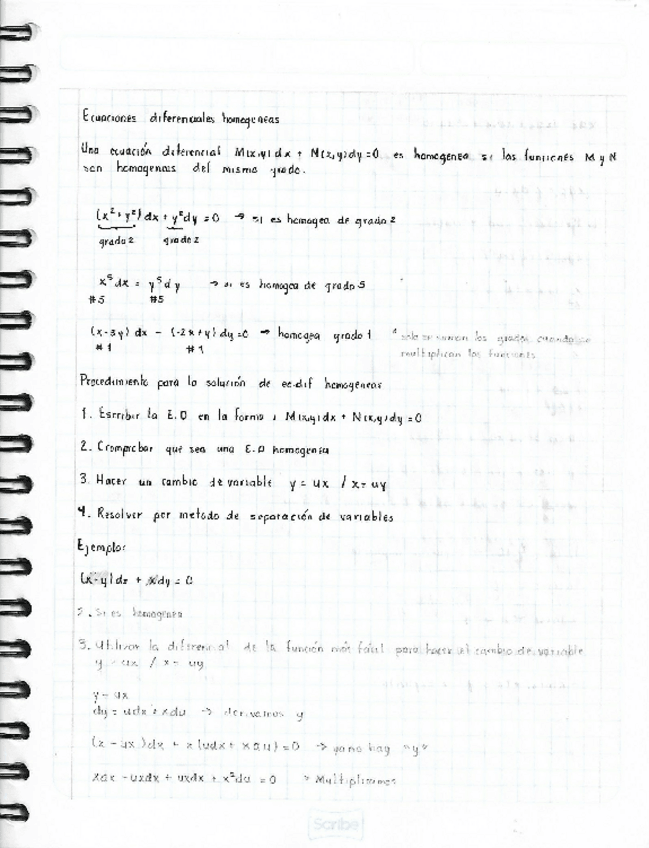 Ecuaciones diferenciales homogeneas
Una ecuación diferencial M(x,y)dx + N(x,y)dy=0 es homogenea si las funciones M y N
son homogeneas del mismo grado.
(x²+y²)dx + y²dy = 0 → si es homogea de grado 2
grado 2 grado 2
x⁵dx = y⁵dy → si es homogea de grado 5
#5 #5
(x-3y) dx - (-2x+y) dy=0 → homogea grado 1 * solo se suman los grados cuando se
#1 #1 multiplican las funciones
Procedimiento para la solución de ec.dif homogeneas
1. Escribir la E.D en la forma: M(x,y)dx + N(x,y)dy=0
2. Cromprobar que sea una E.D homogenea
3. Hacer un cambio de variable y = ux / x= uy
4. Resolver por metodo de separación de variables
Ejemplo:
(x-y)dx + xdy = 0
2. Si es homogenea
3. Utilizar la diferencial de la función más fácil para hacer el cambio de variable
y = ux / x = uy
y = ux
dy = udx + xdu → derivamos y
(x - ux)dx + x(udx + xdu) = 0 → ya no hay "y"
xdx - uxdx + uxdx + x²du = 0 → Multiplicamos
Scribe